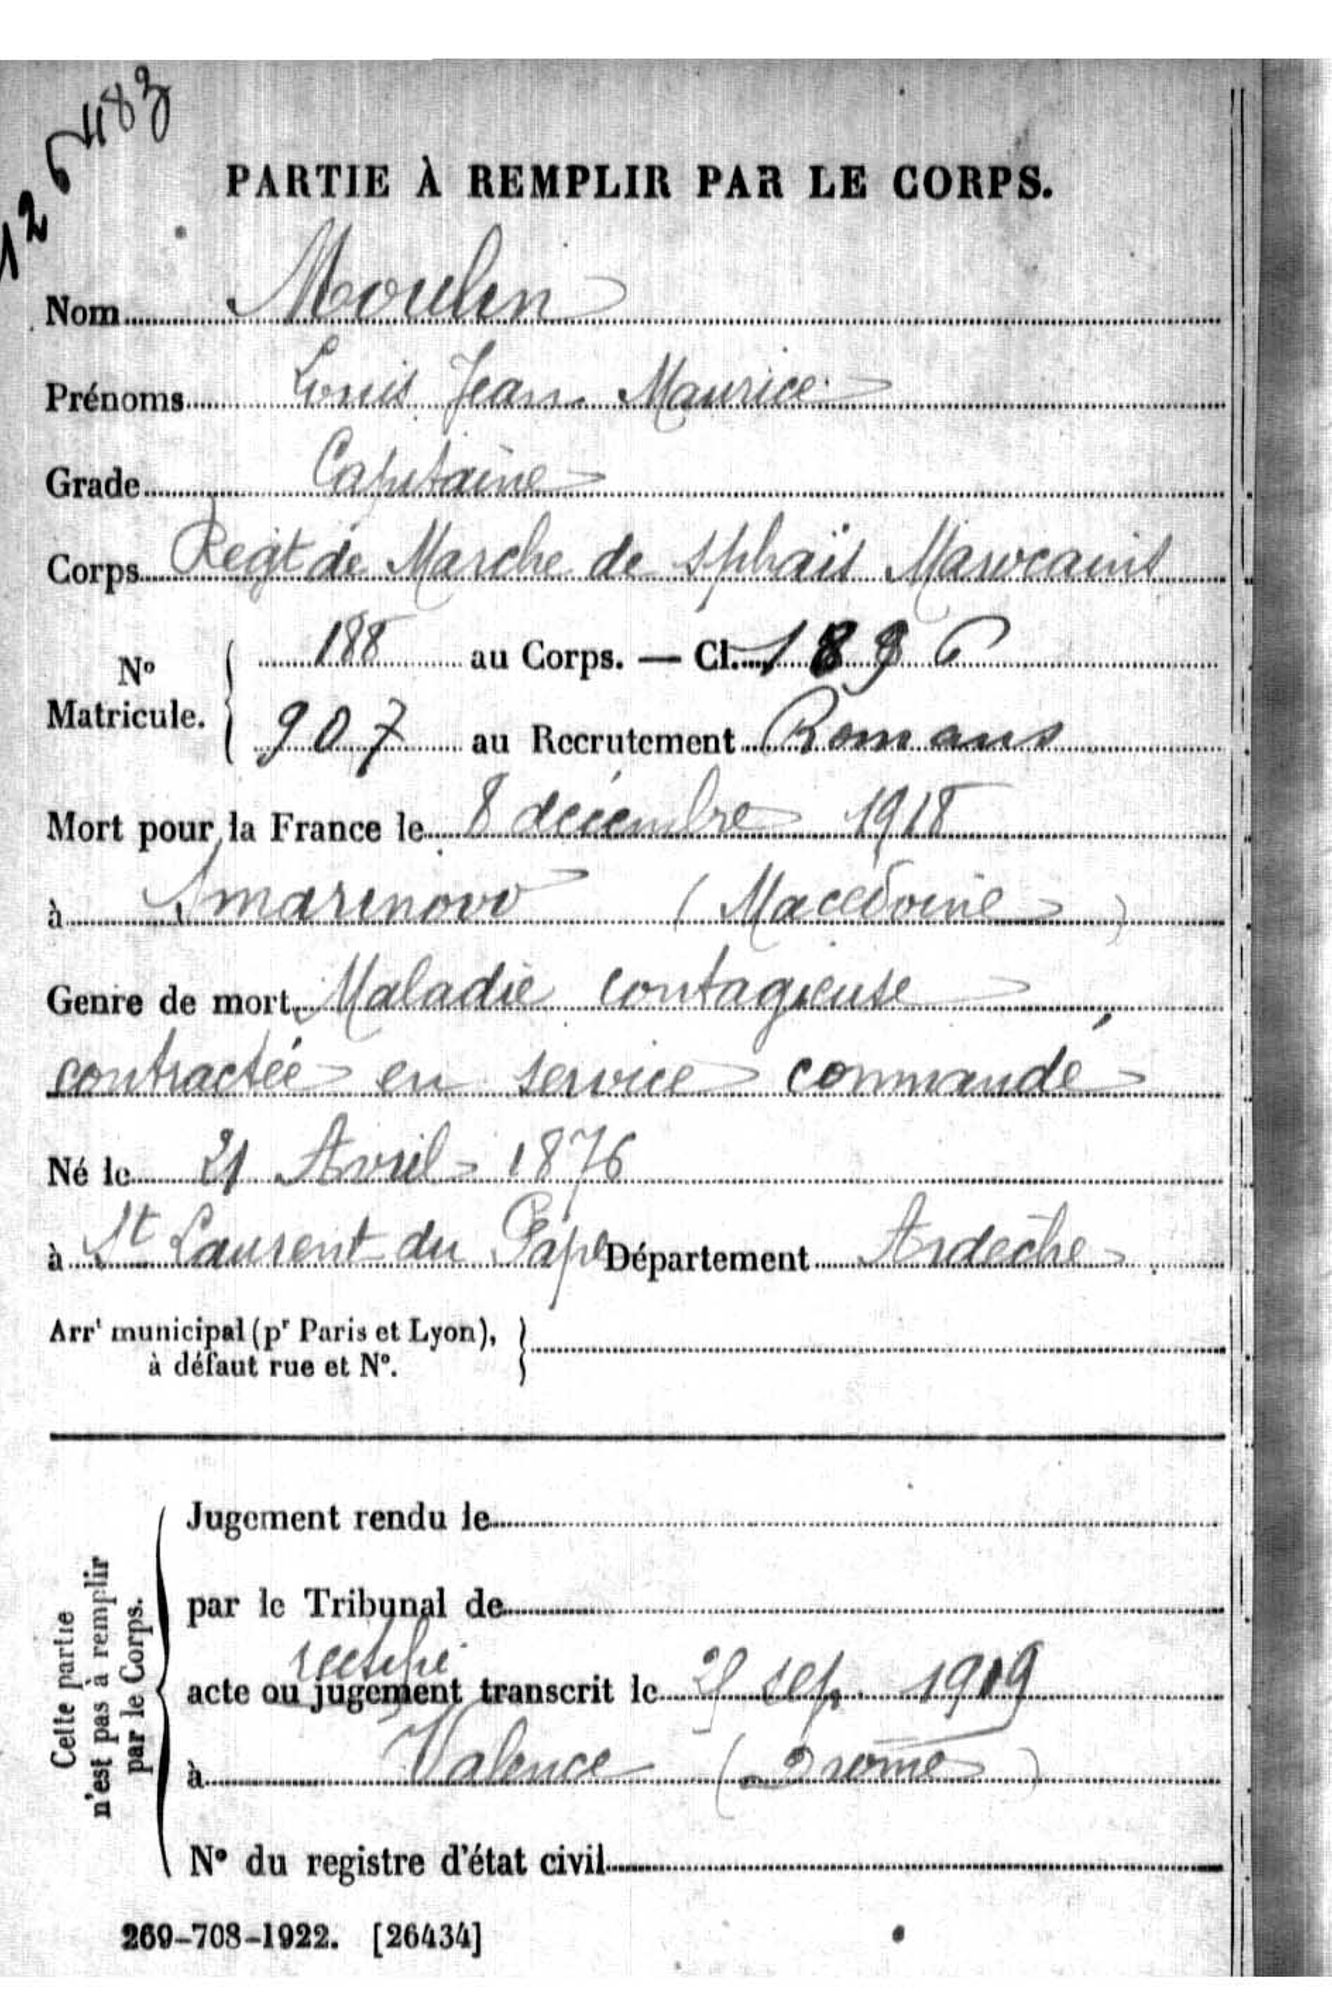 126483
PARTIE À REMPLIR PAR LE CORPS.
Nom Moulin
Prénoms Louis Jean Maurice
Grade Capitaine
Corps Regt de Marche de Sphaïs Marocains
No 188 au Corps. — Cl. 1896
Matricule. 907 au Recrutement Romans
Mort pour la France le 8 décembre 1918
à Smarinovo (Macédoine)
Genre de mort Maladie contagieuse
contractée en service commandé
Né le 21 Avril 1876
à St Laurent du Pape Département Ardèche
Arrt municipal (pr Paris et Lyon),
à défaut rue et No.
Cette partie
n'est pas à remplir
par le Corps.
Jugement rendu le
par le Tribunal de
rectifié
acte ou jugement transcrit le sep. 1919
à Valence (Drôme)
No du registre d'état civil
269-708-1922. [26434]